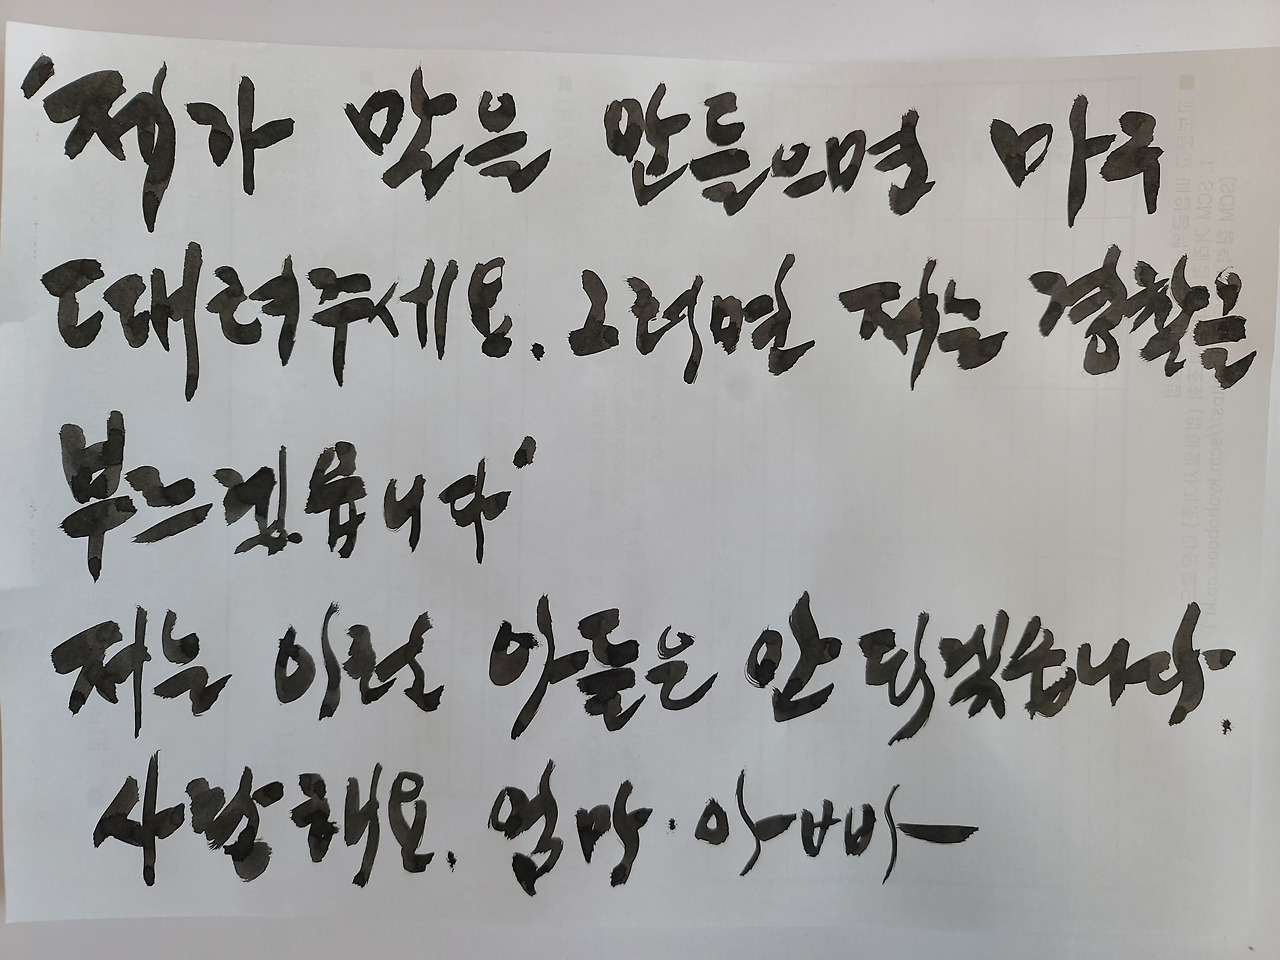 "제가 말을 안들으면 마구
때려주세요. 그러면 저는 경찰을
부르겠읍니다"
저는 이런 아들은 안 되겠습니다.
사랑해요. 엄마·아빠